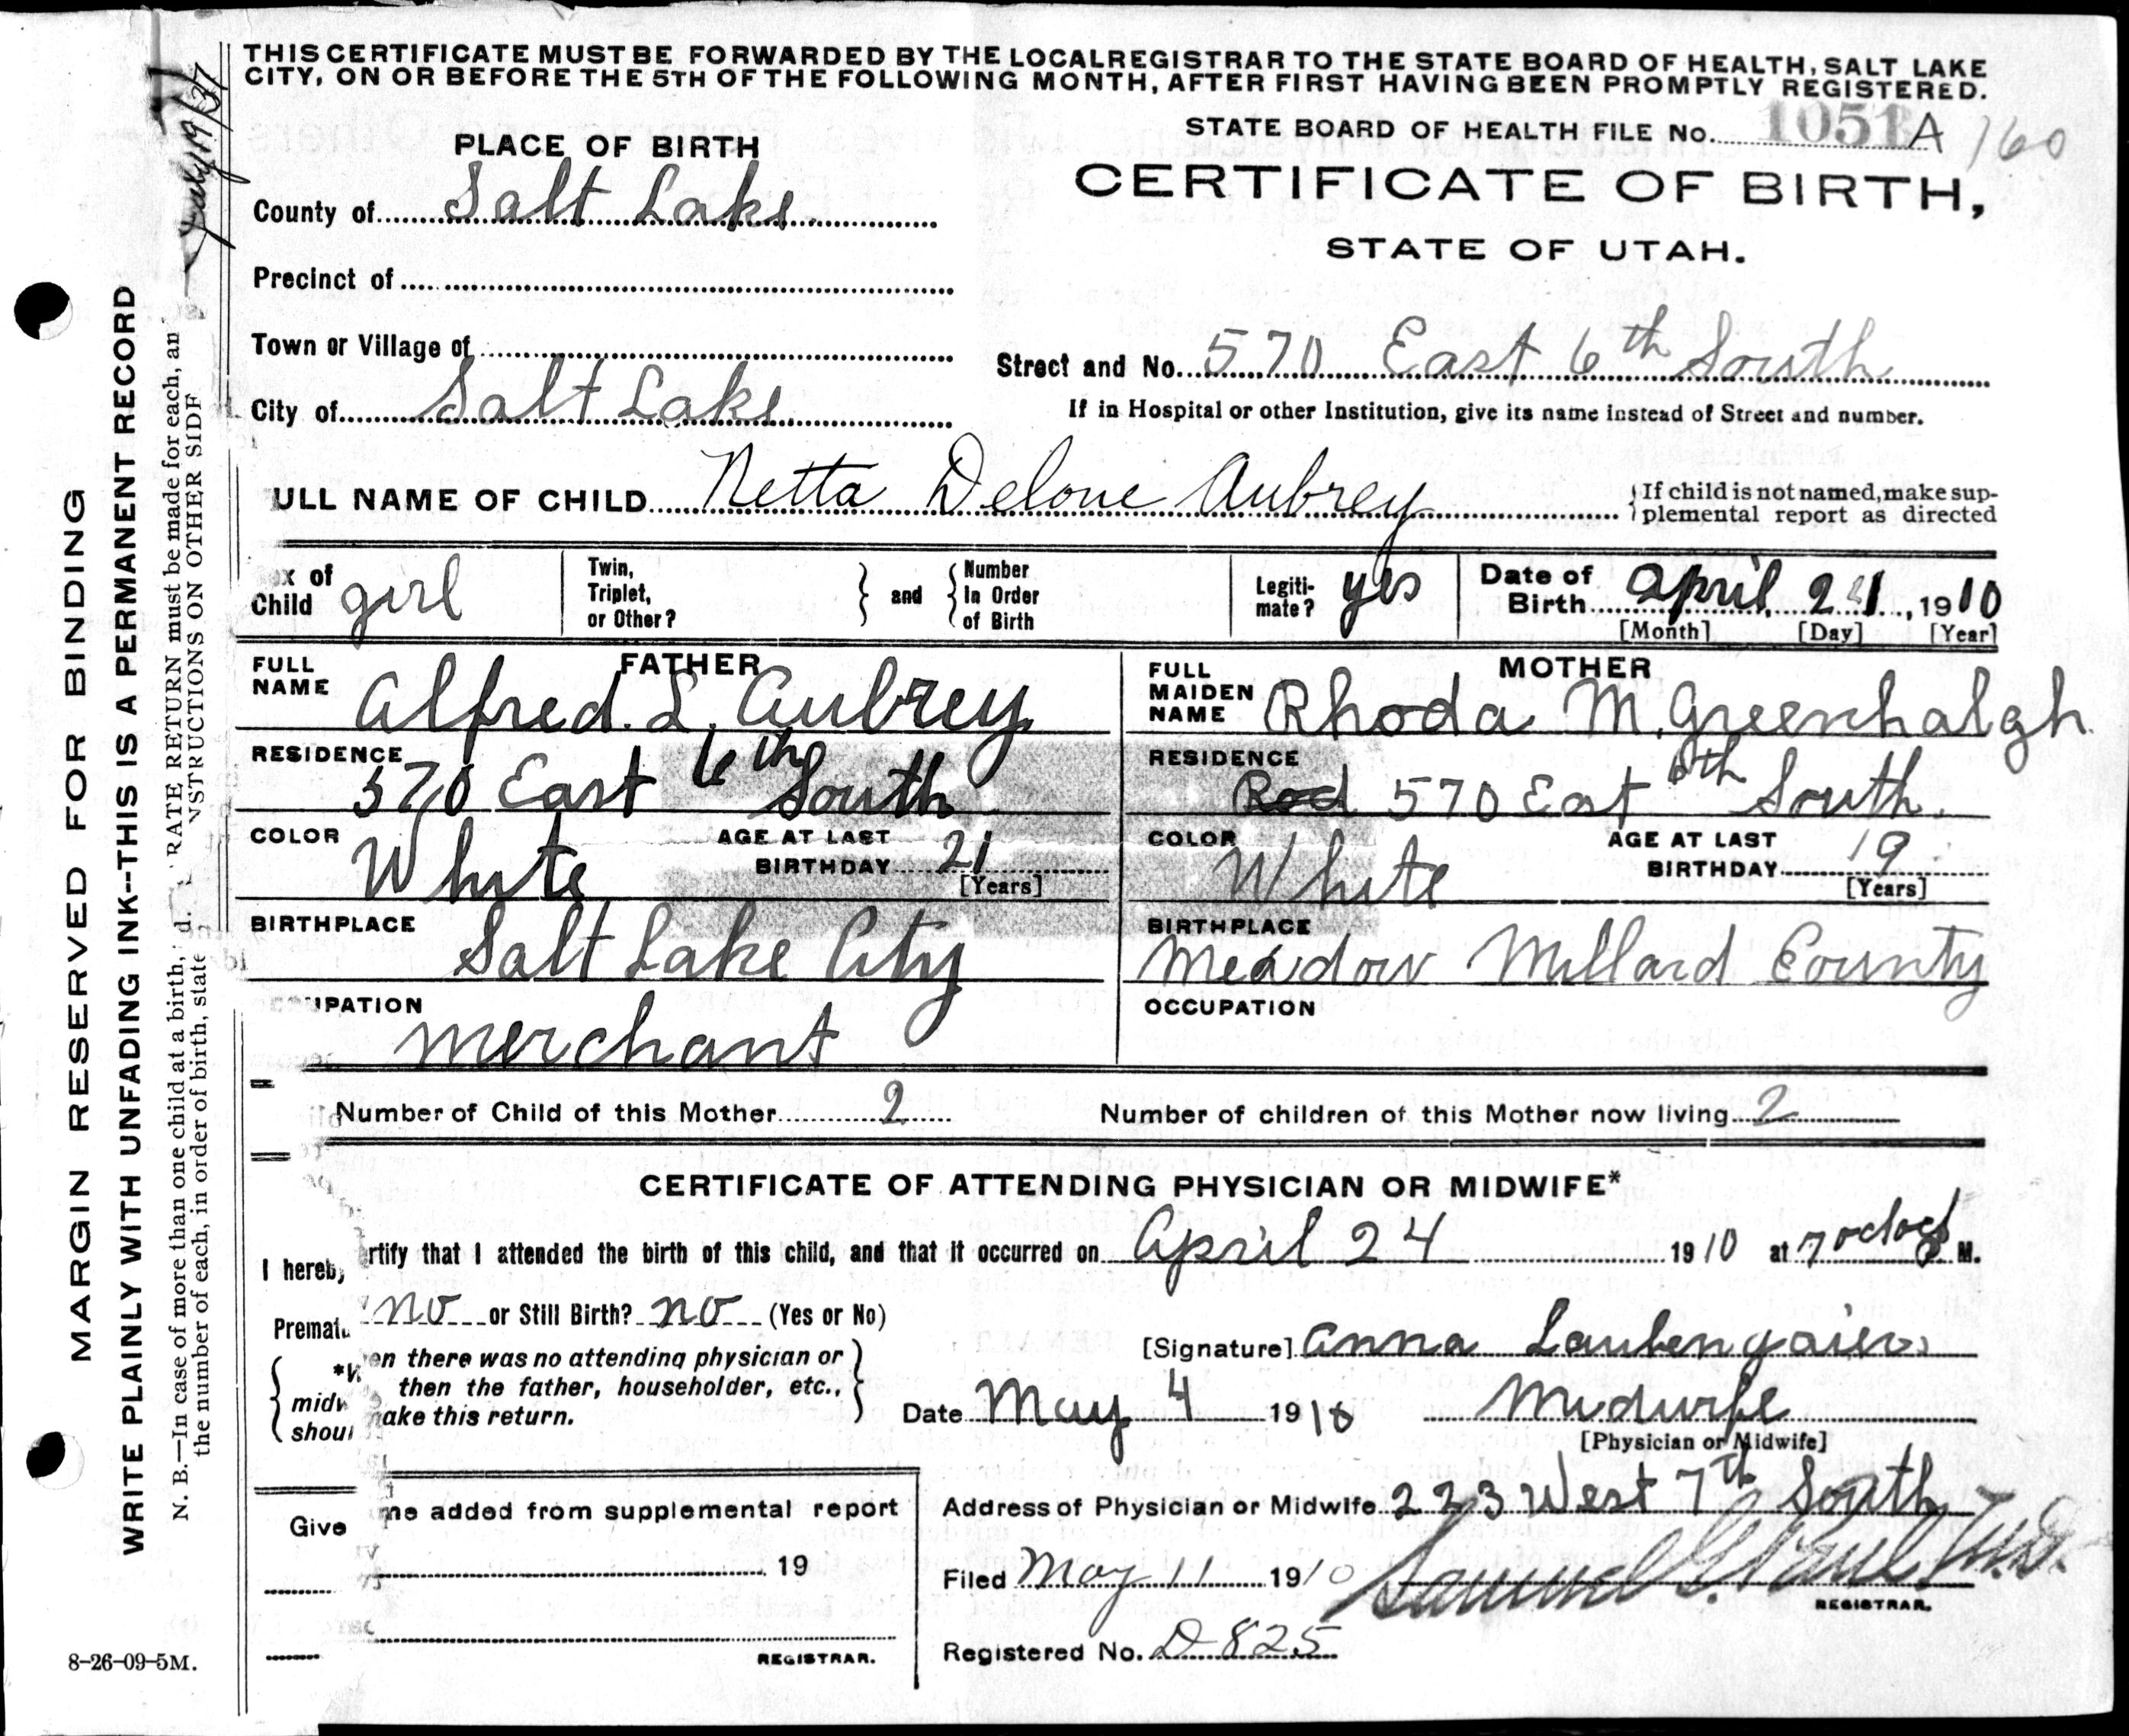 THIS CERTIFICATE MUST BE FORWARDED BY THE LOCAL REGISTRAR TO THE STATE BOARD OF HEALTH, SALT LAKE
CITY, ON OR BEFORE THE 5TH OF THE FOLLOWING MONTH, AFTER FIRST HAVING BEEN PROMPTLY REGISTERED.
STATE BOARD OF HEALTH FILE No. 1051 A 160
PLACE OF BIRTH
CERTIFICATE OF BIRTH,
STATE OF UTAH.
County of Salt Lake
Precinct of
Town or Village of
Street and No. 570 East 6th South
City of Salt Lake
If in Hospital or other Institution, give its name instead of Street and number.
ULL NAME OF CHILD Netta Delone Aubrey
If child is not named, make sup-
plemental report as directed
ex of
Child girl
Twin,
Triplet,
or Other?
and
Number
In Order
of Birth
Legiti-
mate? yes
Date of
Birth April 24, 1910
[Month] [Day] [Year]
FATHER
FULL
NAME Alfred L. Aubrey
RESIDENCE
570 East 6th South
COLOR White
AGE AT LAST
BIRTHDAY 21
[Years]
BIRTHPLACE
Salt Lake City
UPATION
merchant
MOTHER
FULL
MAIDEN
NAME Rhoda M. Greenhalgh
RESIDENCE
570 Eat 6th South.
COLOR White
AGE AT LAST
BIRTHDAY 19
[Years]
BIRTHPLACE
Meadow Millard County
OCCUPATION
Number of Child of this Mother 2
Number of children of this Mother now living 2
CERTIFICATE OF ATTENDING PHYSICIAN OR MIDWIFE*
I hereby rtify that I attended the birth of this child, and that it occurred on April 24 1910 at 7 oclock M.
Premat no or Still Birth? no (Yes or No)
*W en there was no attending physician or
midw then the father, householder, etc.,
shoul make this return.
[Signature] Anna Laubengaier
Date May 4 1910 Midwife
[Physician or Midwife]
Give me added from supplemental report
19
REGISTRAR.
Address of Physician or Midwife 223 West 7th South
Filed May 11 1910 Samuel G. Paul M.D.
REGISTRAR.
Registered No. D 825
MARGIN RESERVED FOR BINDING
WRITE PLAINLY WITH UNFADING INK--THIS IS A PERMANENT RECORD
N. B.—In case of more than one child at a birth, RATE RETURN must be made for each, an
the number of each, in order of birth, stated. NSTRUCTIONS ON OTHER SIDE
July 19/37
8-26-09-5M.